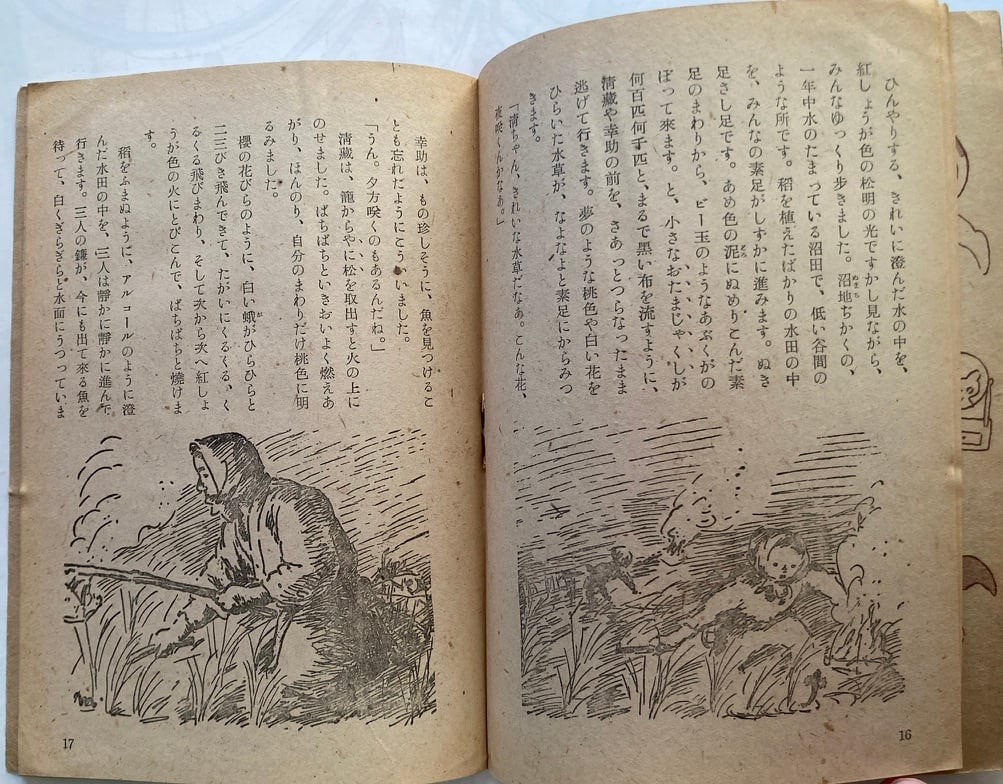 ひんやりする、きれいに澄んだ水の中を、
紅しょうが色の松明の光ですかし見ながら、
みんなゆっくり歩きました。沼地ぢかくの、
ぬまち
一年中水のたまっている沼田で、低い谷間の
ような所です。稻を植えたばかりの水田の中
を、みんなの素足がしずかに進みます。ぬき
足さし足です。あめ色の泥にぬめりこんだ素
どろ
足のまわりから、ビー玉のようなあぶくがの
ぼって來ます。と、小さなおたまじゃくしが
何百匹何千匹と、まるで黒い布を流すように、
清藏や幸助の前を、さあっとつらなったまま
逃げて行きます。夢のような桃色や白い花を
ひらいた水草が、なよなよと素足にからみつ
きます。
「清ちゃん、きれいな水草だなあ。こんな花、
夜咲くんかなあ。」
16
幸助は、もの珍しそうに、魚を見つけるこ
とも忘れだようにこういいました。
「うん。夕方咲くのもあるんだね。」
清藏は、籠からやに松を取出すと火の上に
のせました。ぱちぱちといきおいよく燃えあ
がり、ほんのり、自分のまわりだけ桃色に明
るみました。
櫻の花びらのように、白い蛾がひらひらと
が
二三びき飛んできて、たがいにくるくる、く
るくる飛びまわり、そして次から次へ紅しょ
うが色の火にとびこんで、ぱちぱちと燒けま
す。
稻をふまぬように、アルコールのように澄
んだ水田の中を、三人は靜かに靜かに進んで
行きます。三人の鎌が、今にも出て來る魚を
待って、白くぎらぎらと水面にうつっていま
17